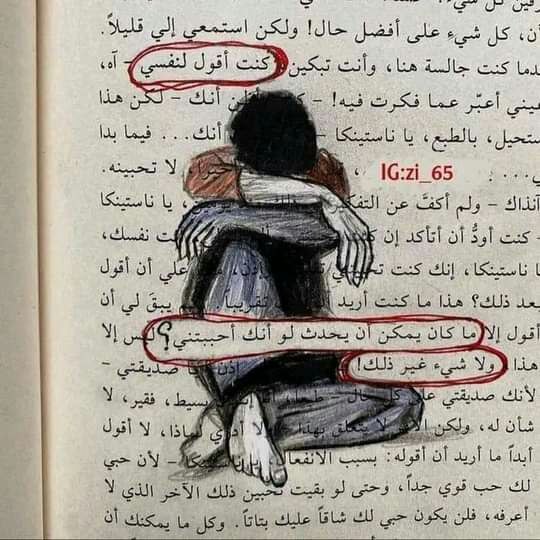 أن، كل شيء على أفضل حال! ولكن استمعي إلي قليلاً.
ـدما كنت جالسة هنا، وأنت تبكين كنت أقول لنفسي - آه،
عيني أعبّر عما فكرت فيه! - أنك - لكن هذا
ستحيل، بالطبع، يا ناستينكا أنك... فيما بدا
لا تحبينه.
IG:zi_65
آنذاك - ولم أكفّ عن يا ناستينكا
- كنت أودُّ أن أتأكد إن نفسك،
ا ناستينكا، إنك كنت علي أن أقول
بعد ذلك؟ هذا ما كنت أريد تقريباً يبقَ لي أن
أقول إلا ما كان يمكن أن يحدث لو أنك أحببتني؟ ليس إلا
هذا ولا شيء غير ذلك! صديقتي -
لأنك صديقتي على كل حال بسيط، فقير، لا
شأن له، ولكن لا يتعلق بهذا لا أدري ماذا، لا أقول
أبداً ما أريد أن أقوله: بسبب الانفعال يا ناستينكا - لأن حبي
لك حب قوي جداً، وحتى لو بقيت تحبين ذلك الآخر الذي لا
أعرفه، فلن يكون حبي لك شاقاً عليك بتاتاً. وكل ما يمكنك أن